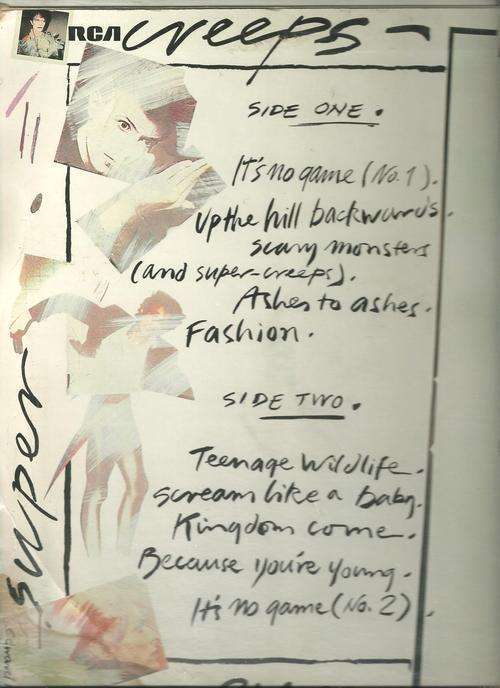 RCA creeps
SIDE ONE.
It's no game (No. 1).
Up the hill backwards.
scary monsters
(and super-creeps).
Ashes to ashes.
Fashion.
SIDE TWO.
Teenage Wildlife.
Scream like a baby.
Kingdom come.
Because you're young.
It's no game (No. 2).
super